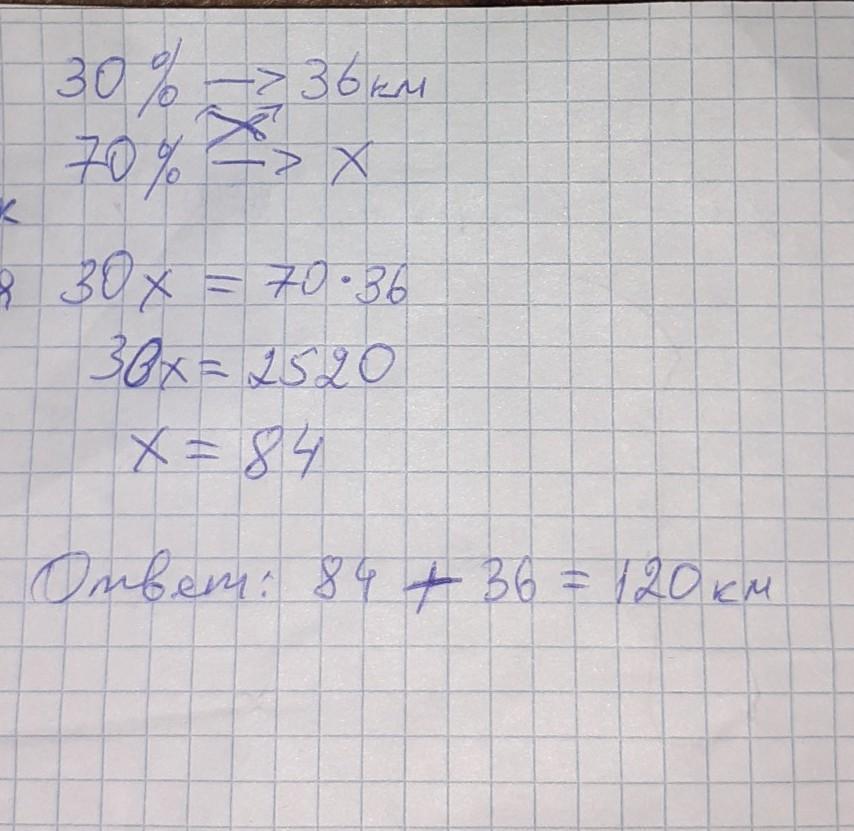 30% —> 36км
70% —> x
к
я
30x = 70·36
30x = 2520
x = 84
Ответ: 84 + 36 = 120км